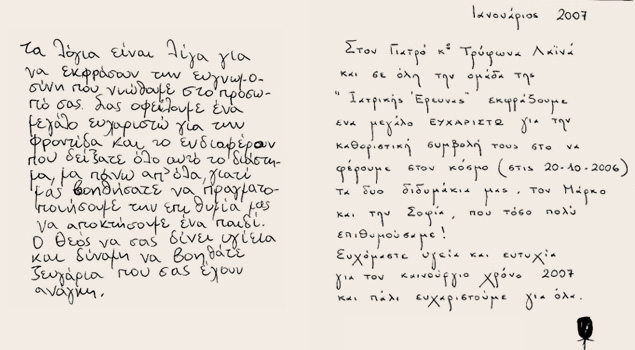 Τα λόγια είναι λίγα για
να εκφράσουν την ευγνωμο-
σύνη που νιώθαμε στο πρόσω-
πό σας. Σας οφείλουμε ένα
μεγάλο ευχαριστώ για την
φροντίδα και το ενδιαφέρον
που δείξατε όλο αυτό το διάστη-
μα, μα πάνω απ' όλα, γιατί
μας βοηθήσατε να πραγματο-
ποιήσουμε την επιθυμία μας
να αποκτήσουμε ένα παιδί.
Ο Θεός να σας δίνει υγίεία
και δύναμη να βοηθάτε
ζευγάρια που σας έχουν
ανάγκη.
Ιανουάριος 2007
Στον Γιατρό κο Τρύφωνα Λαϊνά
και σε όλη την ομάδα της
"Ιατρικής Έρευνας" εκφράζουμε
ενα μεγάλο ΕΥΧΑΡΙΣΤΩ για την
καθοριστική συμβολή τους στο να
φέρουμε στον κόσμο (στις 20-10-2006)
τα δυο διδυμάκια μας, τον Μάρκο
και την Σοφία, που τόσο πολύ
επιθυμούσαμε!
Ευχόμαστε υγεία και ευτυχία
για τον καινούργιο χρόνο 2007
και πάλι ευχαριστούμε για όλα.